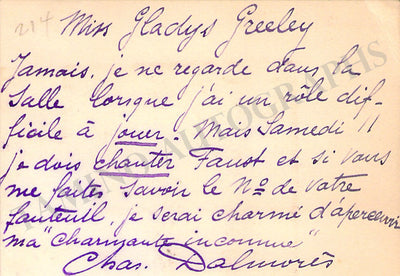 214
Miss Gladys Greeley
Jamais, je ne regarde dans la
Salle lorsque j'ai un rôle dif-
ficile à jouer. Mais Samedi 11
je dois chanter Faust et si vous
me faites savoir le No de votre
fauteuil, je serai charmé d'apercevoir
ma "Charmante inconnue"
Chas. Dalmorès
TAMINO AUTOGRAPHS